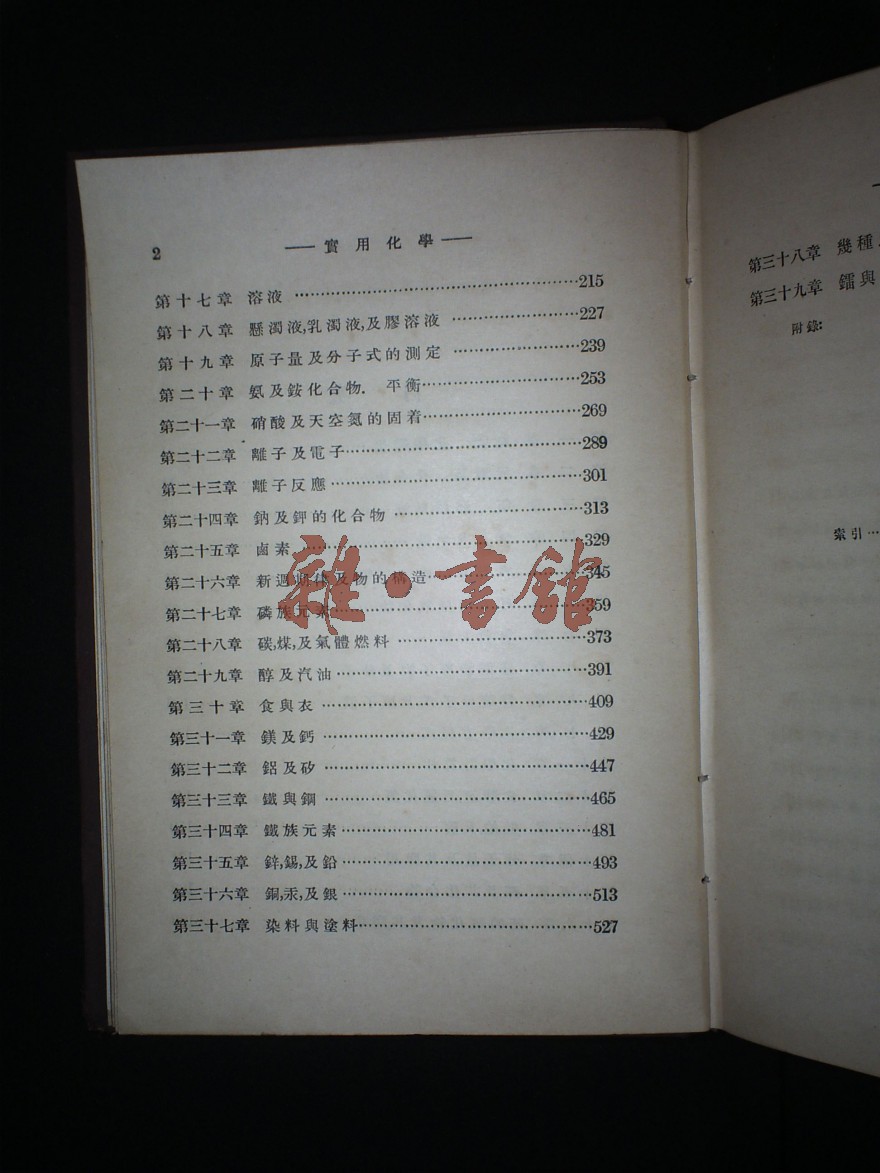 2 —— 實用化學 ——
第十七章 溶液 …………215
第十八章 懸濁液,乳濁液,及膠溶液 …………227
第十九章 原子量及分子式的測定 …………239
第二十章 氨及銨化合物. 平衡…………253
第二十一章 硝酸及天空氮的固着…………269
第二十二章 離子及電子…………289
第二十三章 離子反應…………301
第二十四章 鈉及鉀的化合物 …………313
第二十五章 鹵素 …………329
第二十六章 新週期律及物的構造…………345
第二十七章 磷族元素…………359
第二十八章 碳,煤,及氣體燃料 …………373
第二十九章 醇及汽油…………391
第三十章 食與衣 …………409
第三十一章 鎂及鈣 …………429
第三十二章 鋁及矽 …………447
第三十三章 鐵與鋼 …………465
第三十四章 鐵族元素…………481
第三十五章 鋅,錫,及鉛 …………493
第三十六章 銅,汞,及銀…………513
第三十七章 染料與塗料…………527
雜·書館
第三十八章 幾種
第三十九章 鐳與
附錄:
索引…